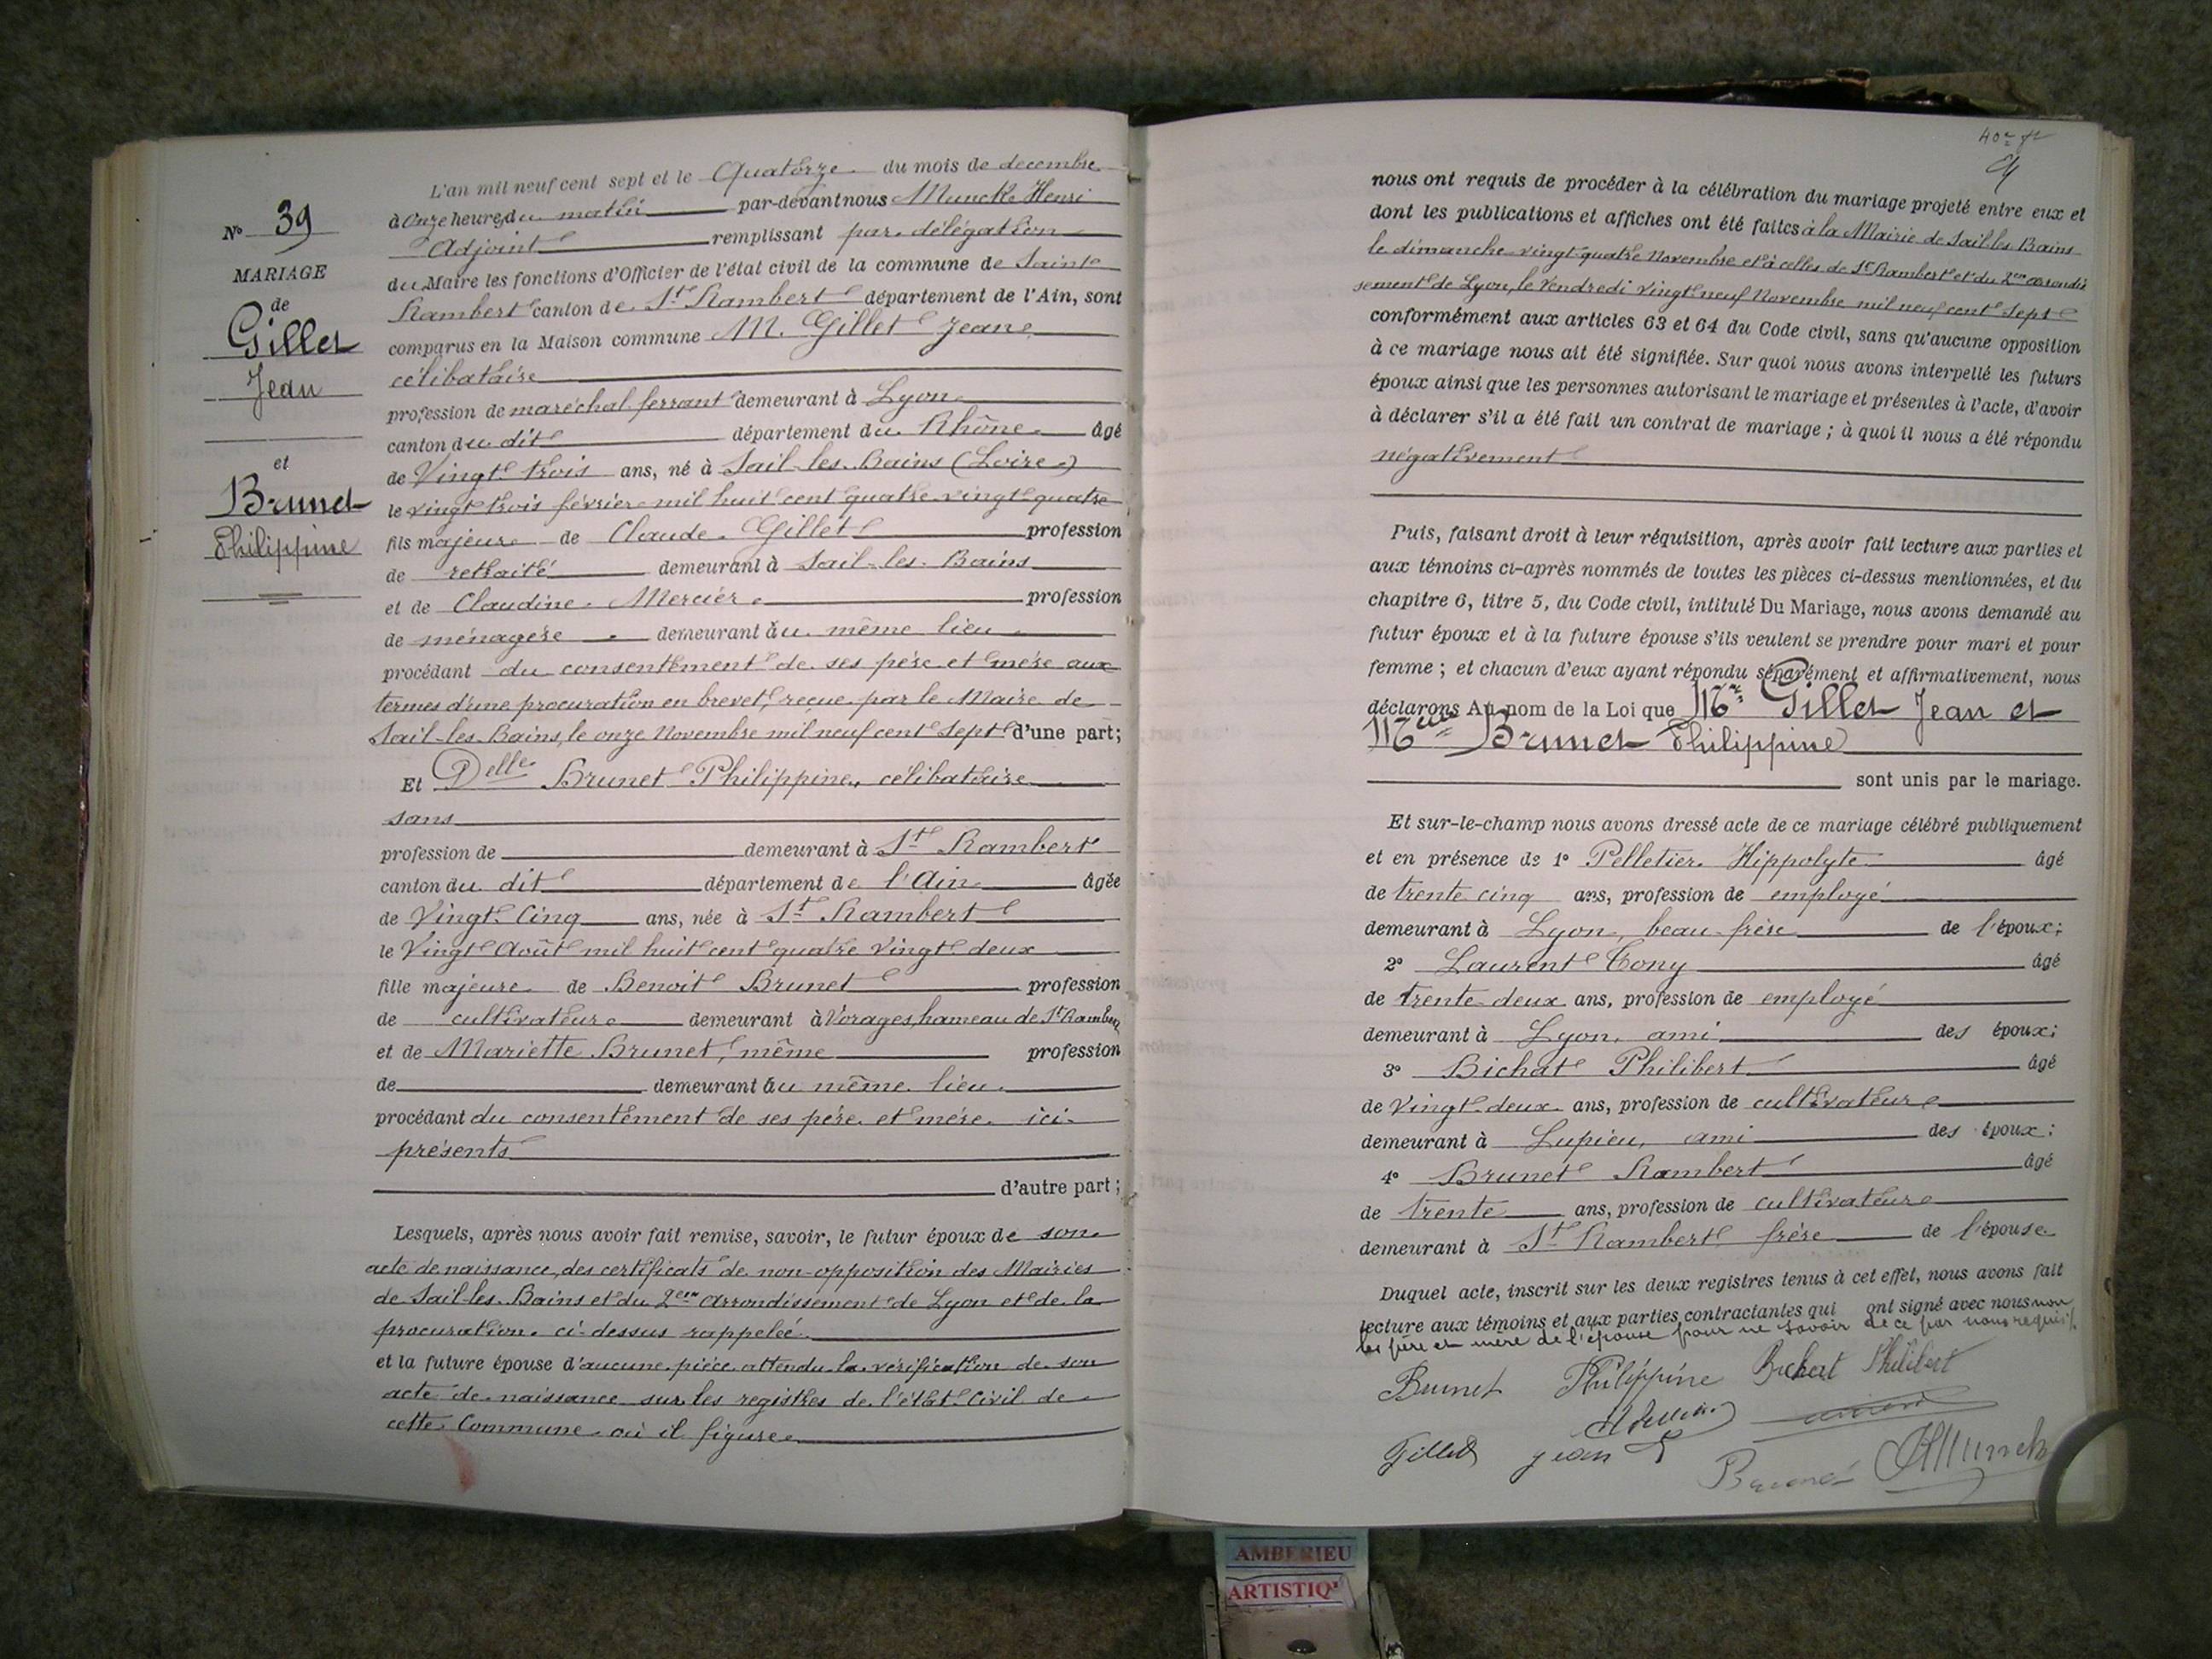 N° 39
MARIAGE
de
Gillet
Jean
et
Brunet
Philippine
L'an mil neuf cent sept et le Quatorze du mois de decembre
à Onze heures du matin par-devant nous Munck Henri
Adjoint remplissant par délégation
du Maire les fonctions d'Officier de l'état civil de la commune de Saint
Rambert canton de St Rambert département de l'Ain, sont
comparus en la Maison commune M. Gillet Jean
célibataire
profession de maréchal ferrant demeurant à Lyon
canton du dit département du Rhône âgé
de Vingt trois ans, né à Sail-les-Bains (Loire)
le vingt trois février mil huit cent quatre vingt quatre
fils majeur de Claude Gillet profession
de retraité demeurant à Sail-les-Bains
et de Claudine Mercier profession
de ménagère demeurant au même lieu
procédant du consentement de ses père et mère aux
termes d'une procuration en brevet, reçue par le Maire de
Sail-les-Bains, le onze Novembre mil neuf cent Sept d'une part;
Et Delle Brunet Philippine, célibataire
sans
profession de demeurant à St Rambert
canton du dit département de l'Ain âgée
de Vingt Cinq ans, née à St Rambert
le Vingt Août mil huit cent quatre Vingt deux
fille majeure de Benoit Brunet profession
de cultivateur demeurant à Vorages, hameau de St Rambert
et de Mariette Brunet, même profession
de demeurant au même lieu
procédant du consentement de ses père et mère ici
présents
d'autre part;
Lesquels, après nous avoir fait remise, savoir, le futur époux de son
acte de naissance, des certificats de non-opposition des Mairies
de Sail-les-Bains et du 2eme Arrondissement de Lyon et de la
procuration ci-dessus rappelée
et la future épouse d'aucune pièce attendu la vérification de son
acte de naissance sur les registres de l'état Civil de
cette Commune où il figure
40e ft
nous ont requis de procéder à la célébration du mariage projeté entre eux et
dont les publications et affiches ont été faites à la Mairie de Sail les Bains
le dimanche vingt quatre Novembre et à celles de St Rambert et du 2eme arrondis
sement de Lyon, le Vendredi vingt neuf Novembre mil neuf cent Sept
conformément aux articles 63 et 64 du Code civil, sans qu'aucune opposition
à ce mariage nous ait été signifiée. Sur quoi nous avons interpellé les futurs
époux ainsi que les personnes autorisant le mariage et présentes à l'acte, d'avoir
à déclarer s'il a été fait un contrat de mariage ; à quoi il nous a été répondu
négativement
Puis, faisant droit à leur réquisition, après avoir fait lecture aux parties et
aux témoins ci-après nommés de toutes les pièces ci-dessus mentionnées, et du
chapitre 6, titre 5, du Code civil, intitulé Du Mariage, nous avons demandé au
futur époux et à la future épouse s'ils veulent se prendre pour mari et pour
femme ; et chacun d'eux ayant répondu séparément et affirmativement, nous
déclarons Au nom de la Loi que Mr Gillet Jean et
Melle Brunet Philippine
sont unis par le mariage.
Et sur-le-champ nous avons dressé acte de ce mariage célébré publiquement
et en présence de 1° Pelletier Hippolyte âgé
de trente cinq ans, profession de employé
demeurant à Lyon, beau-frère de l'époux;
2° Laurent Tony âgé
de trente-deux ans, profession de employé
demeurant à Lyon, ami des époux;
3° Bichat Philibert âgé
de Vingt-deux ans, profession de cultivateur
demeurant à Lupieu, ami des époux;
4° Brunet Rambert âgé
de trente ans, profession de cultivateur
demeurant à St Rambert frère de l'épouse
Duquel acte, inscrit sur les deux registres tenus à cet effet, nous avons fait
lecture aux témoins et aux parties contractantes qui ont signé avec nous non
les père et mère de l'épouse pour ne savoir de ce par nous requis
Brunet Philippine Bichat Philibert
Gillet Jean
Brunet HMunck
AMBERIEU
ARTISTIQ